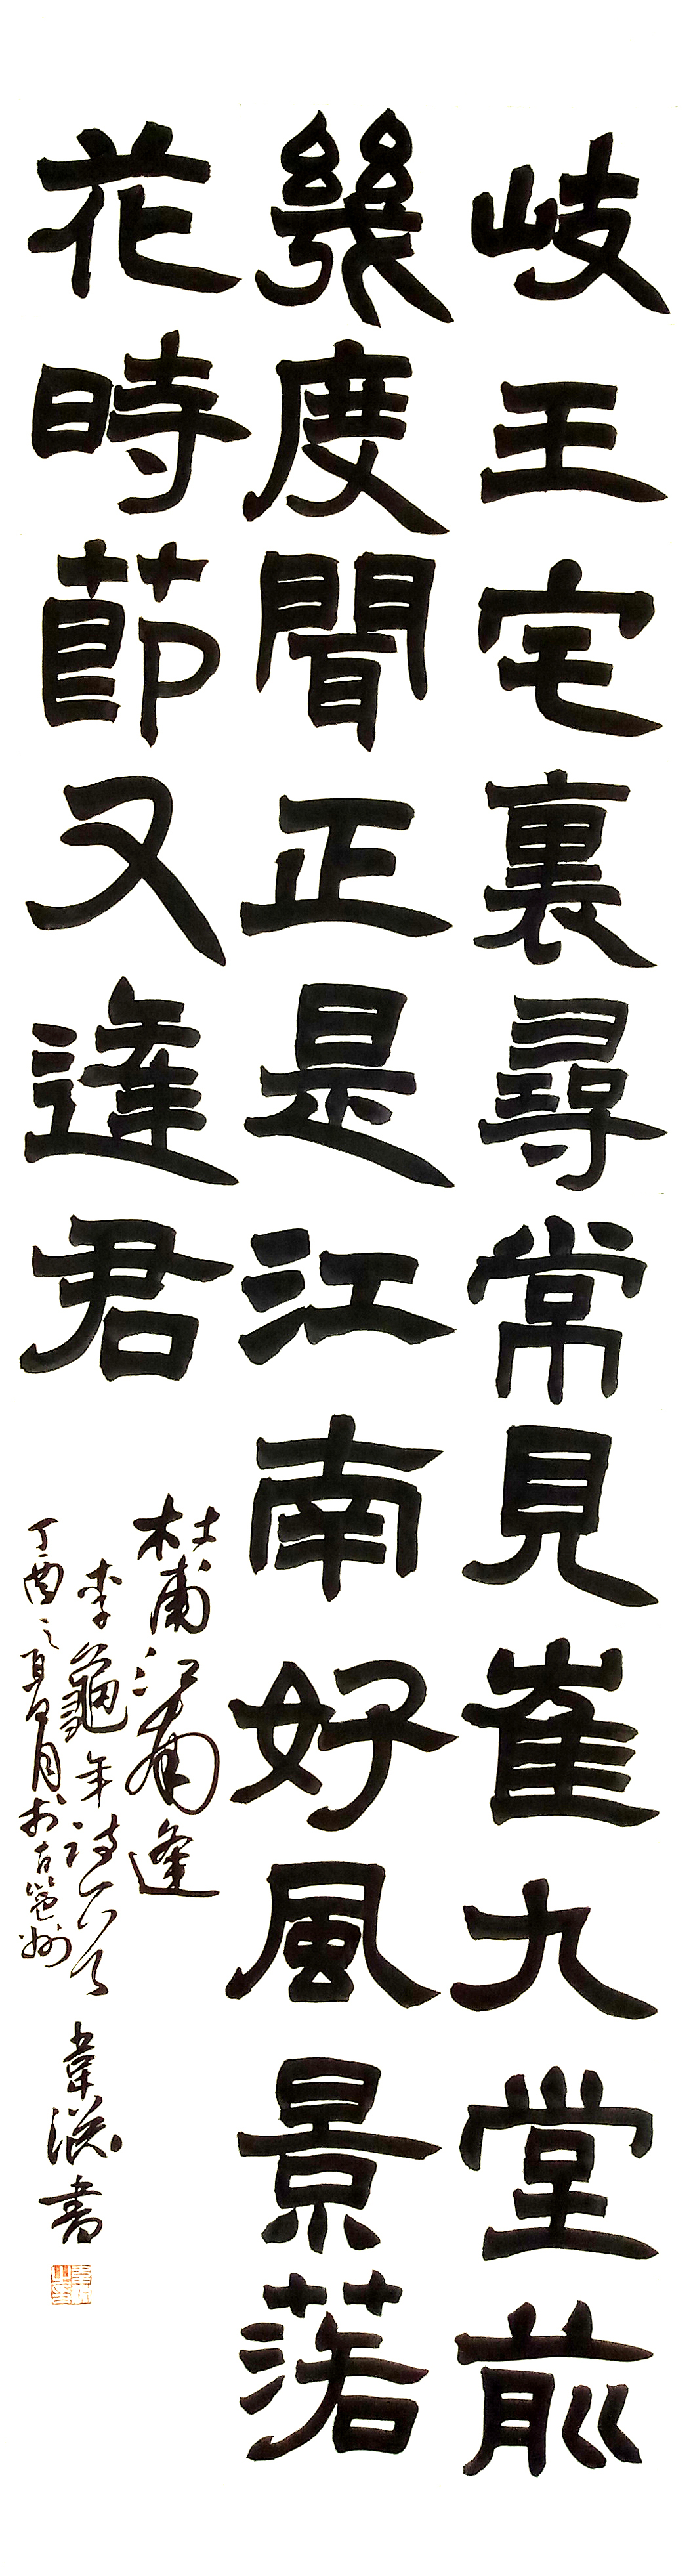 岐王宅裏尋常見崔九堂前
幾度聞正是江南好風景落
花時節又逢君
杜甫江南逢
李龜年詩一首
丁酉之夏月於古邕州
韋 書